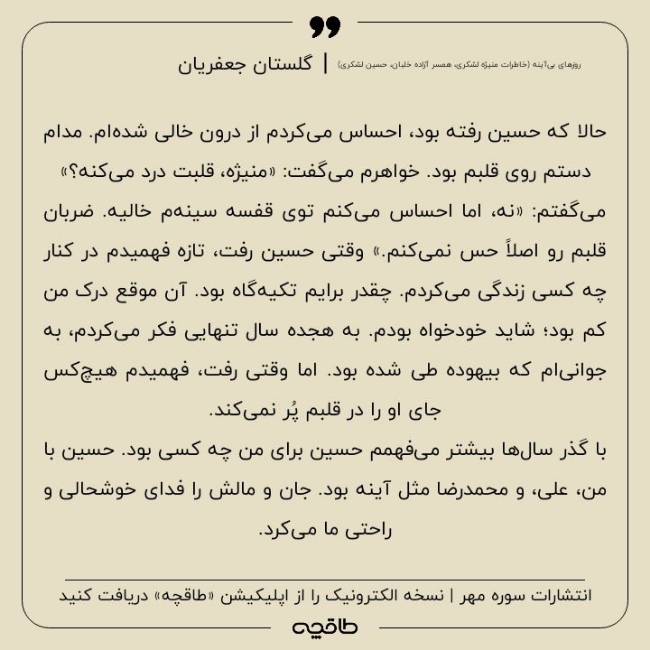 ❞
روزهای بی‌آینه (خاطرات منیژه لشکری، همسر آزاده خلبان، حسین لشکری) | گلستان جعفریان
حالا که حسین رفته بود، احساس می‌کردم از درون خالی شده‌ام. مدام
دستم روی قلبم بود. خواهرم می‌گفت: «منیژه، قلبت درد می‌کنه؟»
می‌گفتم: «نه، اما احساس می‌کنم توی قفسه سینه‌م خالیه. ضربان
قلبم رو اصلاً حس نمی‌کنم.» وقتی حسین رفت، تازه فهمیدم در کنار
چه کسی زندگی می‌کردم. چقدر برایم تکیه‌گاه بود. آن موقع درک من
کم بود؛ شاید خودخواه بودم. به هجده سال تنهایی فکر می‌کردم، به
جوانی‌ام که بیهوده طی شده بود. اما وقتی رفت، فهمیدم هیچ‌کس
جای او را در قلبم پُر نمی‌کند.
با گذر سال‌ها بیشتر می‌فهمم حسین برای من چه کسی بود. حسین با
من، علی، و محمدرضا مثل آینه بود. جان و مالش را فدای خوشحالی و
راحتی ما می‌کرد.
انتشارات سوره مهر | نسخه الکترونیک را از اپلیکیشن «طاقچه» دریافت کنید
طاقچه